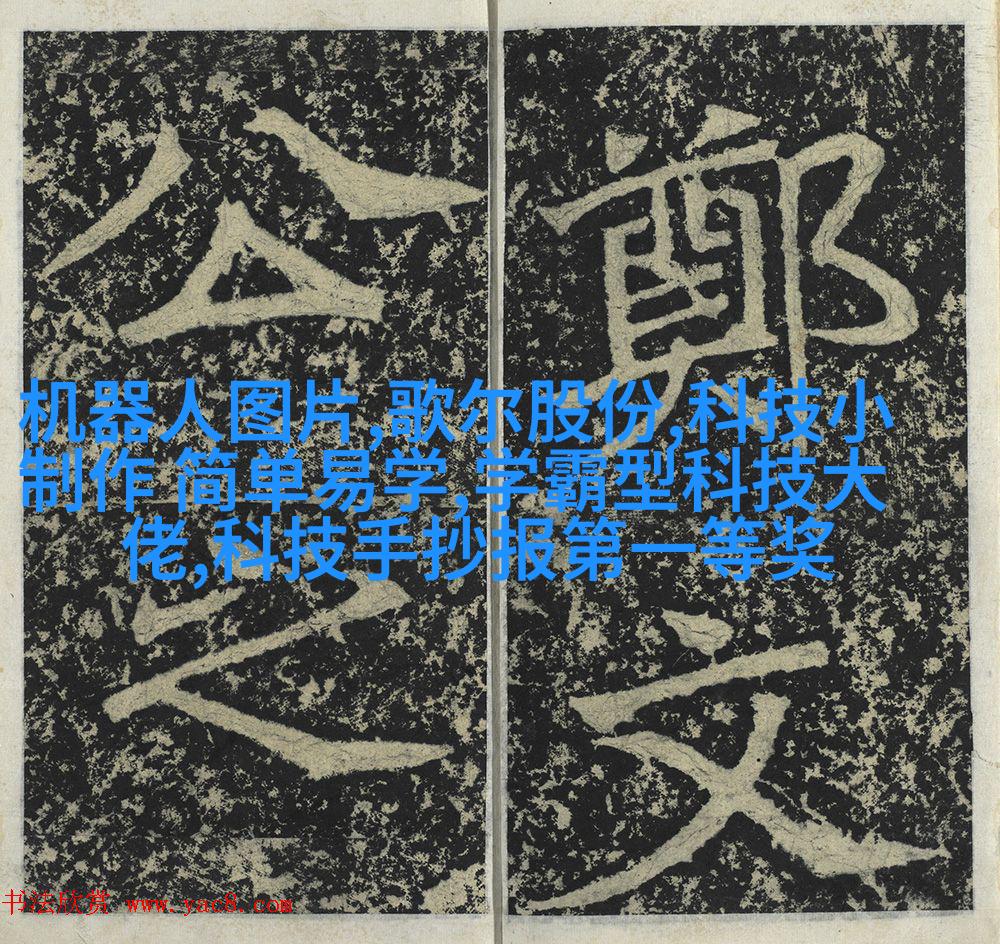 鄭文
公之
机器人图片,歌尔股份,科技小
制作 简单易学,学霸型科技大
佬,科技手抄报第一等奖
书法欣赏 www.yac8.com